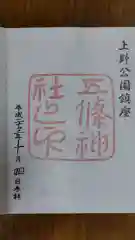 上野公園鎮座
五條神
社之印
平成 年十 月 日参拝